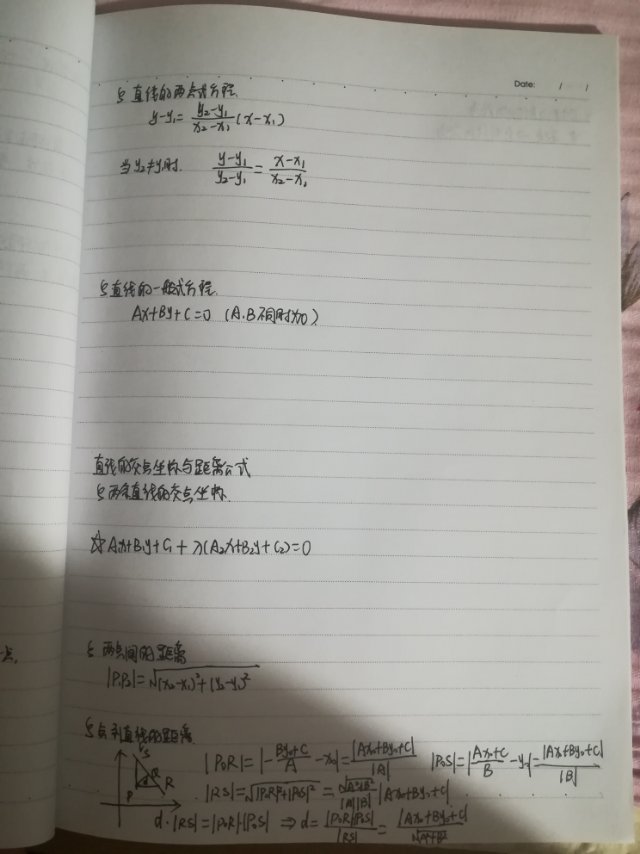 Date: / /
ξ 直线的两点式方程.
y-y₁=\frac{y₂-y₁}{x₂-x₁}(x-x₁)
当y₂≠y₁时. \frac{y-y₁}{y₂-y₁}=\frac{x-x₁}{x₂-x₁}
ξ 直线的一般式方程.
Ax+By+C=0 (A.B不同时为0)
直线的交点坐标与距离公式
ξ 两条直线的交点坐标.
☆A₁x+B₁y+C₁+λ(A₂x+B₂y+C₂)=0
点.
ξ 两点间的距离
|P₁P₂|=\sqrt{(x₂-x₁)²+(y₂-y₁)²}
ξ 点到直线的距离.
|P₀R|=|-\frac{By₀+C}{A}-x₀|=\frac{|Ax₀+By₀+C|}{|A|} |P₀S|=|-\frac{Ax₀+C}{B}-y₀|=\frac{|Ax₀+By₀+C|}{|B|}
S
Q
d
R
P
|RS|=\sqrt{|P₀R|²+|P₀S|²}=\frac{\sqrt{A²+B²}}{|A||B|}|Ax₀+By₀+C|
d·|RS|=|P₀R|·|P₀S| ⇒ d=\frac{|P₀R||P₀S|}{|RS|}=\frac{|Ax₀+By₀+C|}{\sqrt{A²+B²}}